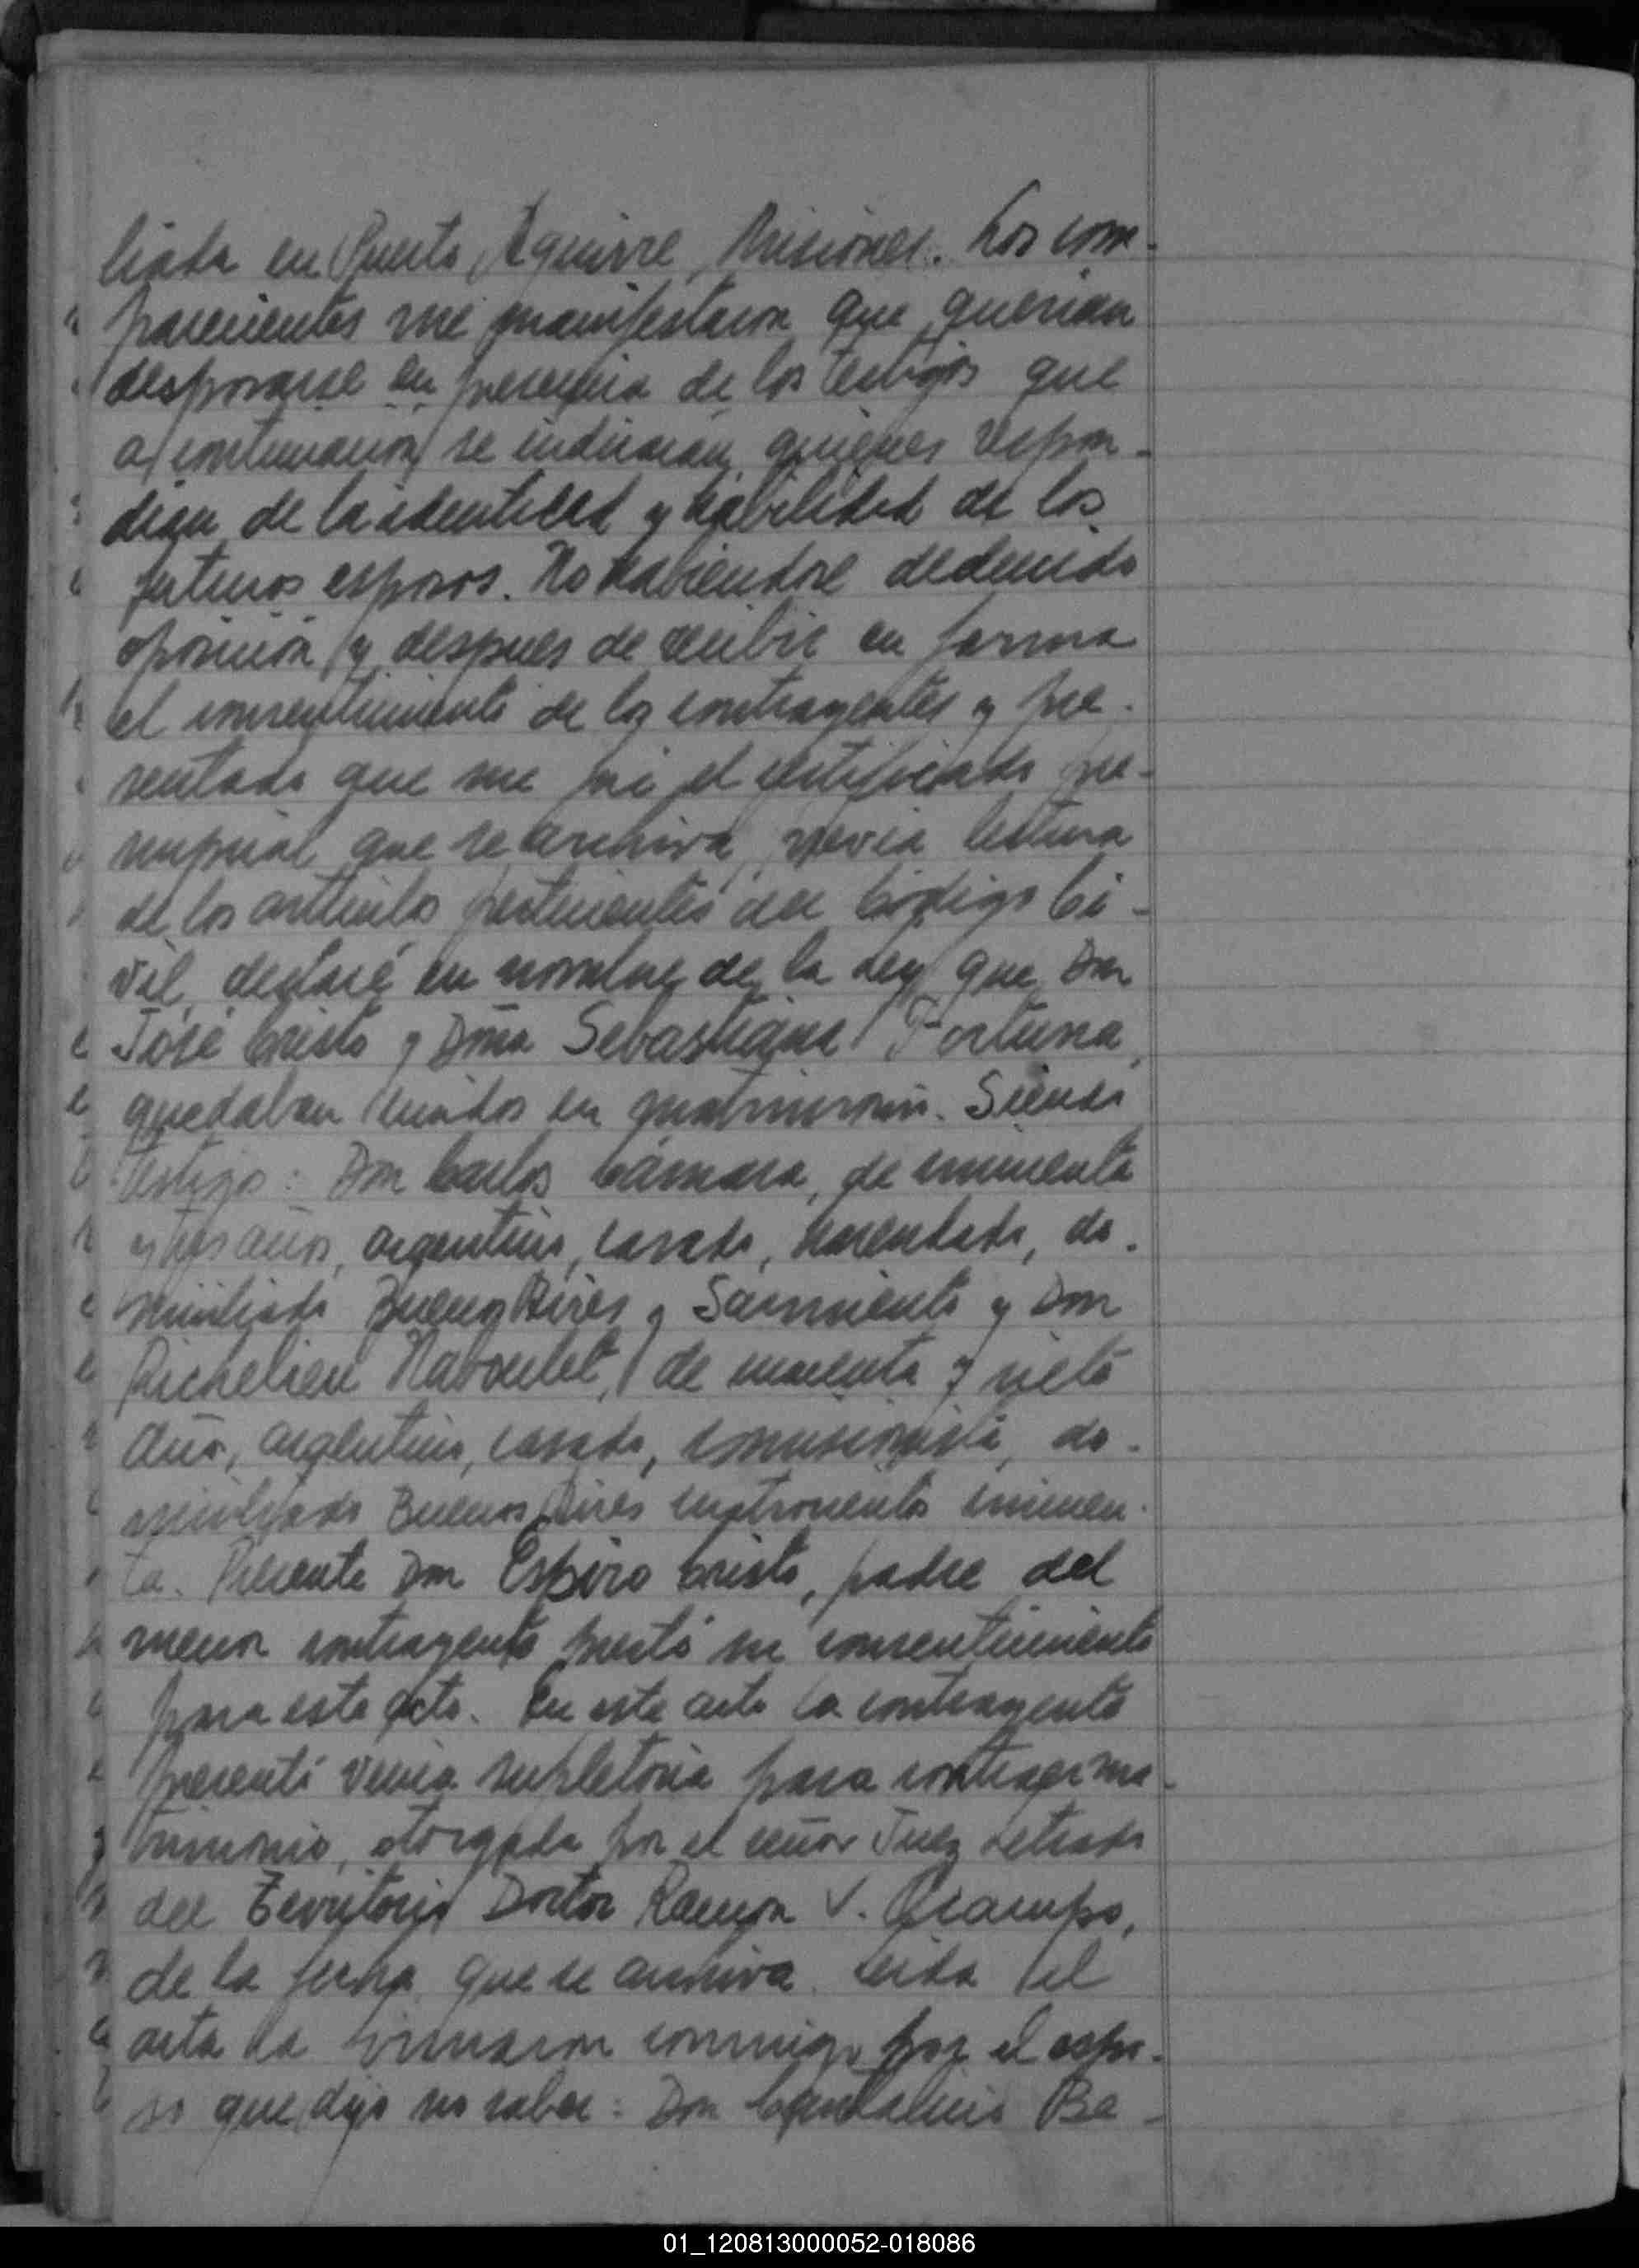 liada en Puerto Aguirre, Misiones. Los com-
parecientes me manifestaron que querian
desposarse en presencia de los testigos que
a continuacion se indicarán, quienes respon-
dian de la identidad y habilidad de los
futuros esposos. No habiendose deducido
oposicion y despues de recibir en forma
el consentimiento de los contrayentes y pre-
sentado que me fué el certificado pre-
nupcial que se archiva, previa lectura
de los articulos pertinentes del Código Ci-
vil, declaré en nombre de la Ley que Don
José Cristo y Doña Sebastiana Fortuna,
quedaban unidos en matrimonio. Siendo
testigo: Don Carlos Cámara, de cincuenta
y tres años, argentino, casado, hacendado, do-
miciliado Buenos Aires y Sarmiento y Don
Richelieu Naboulet, de cuarenta y siete
años, argentino, casado, comisionista, do-
miciliado Buenos Aires cuatrocientos cincuen-
ta. Presente Don Espiro Cristo, padre del
menor contrayente prestó su consentimiento
para este acto. En este acto la contrayente
presentó venia supletoria para contraer ma-
trimonio, otorgada por el señor Juez Letrado
del Territorio Doctor Ramon V. Ocampo,
de la fecha que se archiva. Leida el
acta la firmaron conmigo por el espo-
so que dijo no saber: Don Be-